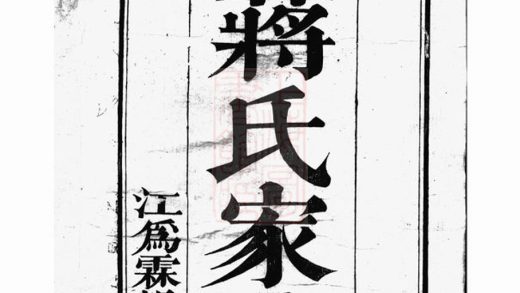 蔣氏家
江爲霖